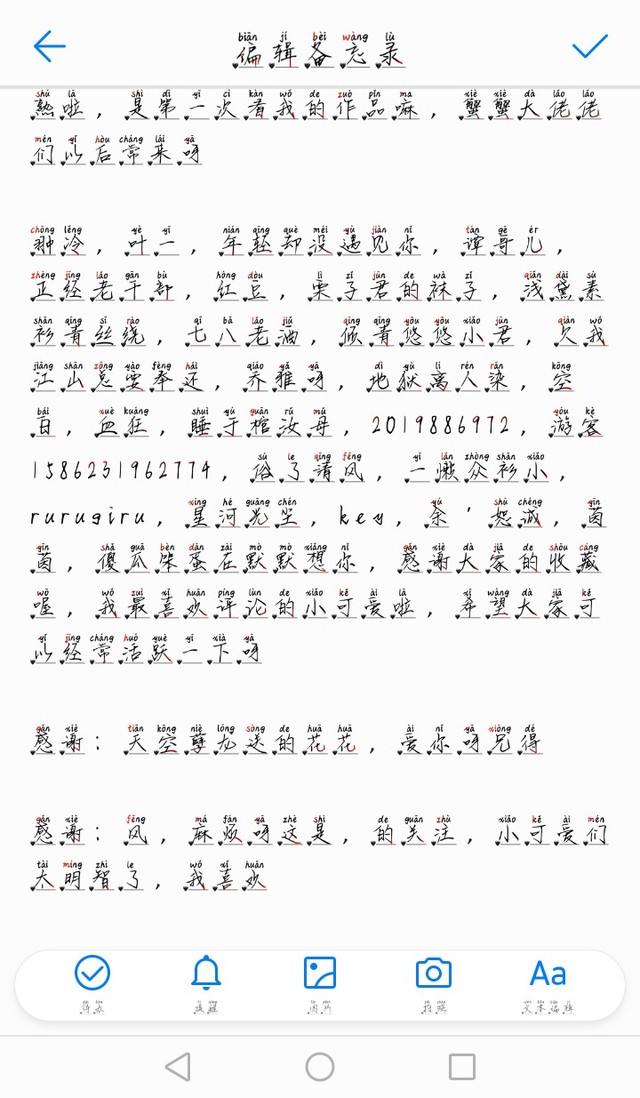 编辑备忘录
熟啦，是第一次看我的作品嘛，蟹蟹大佬佬
们以后常来呀
翀冷，叶一，年轻却没遇见你，谭哥儿，
正经老干部，红豆，栗子君的袜子，浅黛素
衫青丝绕，七八老酒，倾青悠悠小君，欠我
江山总要奉还，乔雅呀，地狱离人染，空
白，血狂，睡于棺汝母，2019886972，游客
1586231962774，俗了清风，一懒众衫小，
rurugiru，星河光尘，key，余′恕诚，茵
茵，傻瓜笨蛋在默默想你，感谢大家的收藏
喔，我最喜欢评论的小可爱啦，希望大家可
以经常活跃一下呀
感谢：天空孽龙送的花花，爱你呀兄得
感谢：风，麻烦呀这是，的关注，小可爱们
太明智了，我喜欢
待办 提醒 图片 拍照 文本编辑
Aa